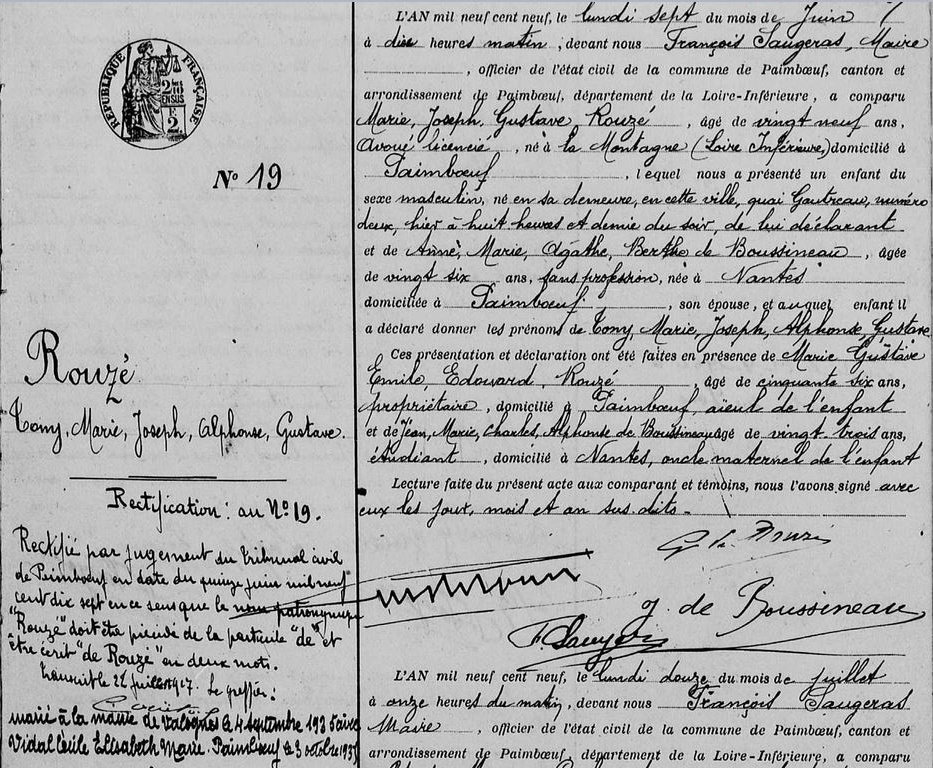 RÉPUBLIQUE FRANÇAISE
2
No 19
Rouzé
Tony, Marie, Joseph, Alphonse, Gustave.
Rectification : au No 19.
Rectifié par jugement du tribunal civil
de Paimbœuf en date du quinze juin mil neuf
cent dix sept en ce sens que le nom patronymique
"Rouzé" doit être précédé de la particule "de" et
être écrit "de Rouzé" en deux mots.
Transcrit le juillet 1917. Le greffier :
marié à la mairie de le 4 septembre 1935 avec
Vidal Cécile Elisabeth Marie. Paimbœuf le 3 octobre 1935
L'AN mil neuf cent neuf, le lundi sept du mois de Juin
à dix heures matin, devant nous François Saugeras, Maire
, officier de l'état civil de la commune de Paimbœuf, canton et
arrondissement de Paimbœuf, département de la Loire-Inférieure, a comparu
Marie, Joseph, Gustave Rouzé, âgé de vingt neuf ans,
Avoué licencié, né à la Montagne (Loire Inférieure,) domicilié à
Paimbœuf, lequel nous a présenté un enfant du
sexe masculin, né en sa demeure, en cette ville, quai Gautreau, numéro
deux, hier à huit heures et demie du soir, de lui déclarant
et de Anne, Marie, Agathe, Berthe de Boussineau, âgée
de vingt six ans, sans profession, née à Nantes
domiciliée à Paimbœuf, son épouse, et auquel enfant il
a déclaré donner les prénoms de Tony, Marie, Joseph, Alphonse, Gustave
Ces présentation et déclaration ont été faites en présence de Marie Gustave
Emile, Edouard, Rouzé, âgé de cinquante six ans,
propriétaire, domicilié à Paimbœuf, aïeul de l'enfant
et de Jean, Marie, Charles, Alphonse de Boussineau âgé de vingt trois ans,
étudiant, domicilié à Nantes, oncle maternel de l'enfant
Lecture faite du présent acte aux comparant et témoins, nous l'avons signé avec
eux les jour, mois et an sus dits.
Rouzé
J. de Boussineau
F. Saugeras
L'AN mil neuf cent neuf, le lundi douze du mois de juillet
à onze heures du matin, devant nous François Saugeras
Maire, officier de l'état civil de la commune de Paimbœuf, canton et
arrondissement de Paimbœuf, département de la Loire-Inférieure, a comparu